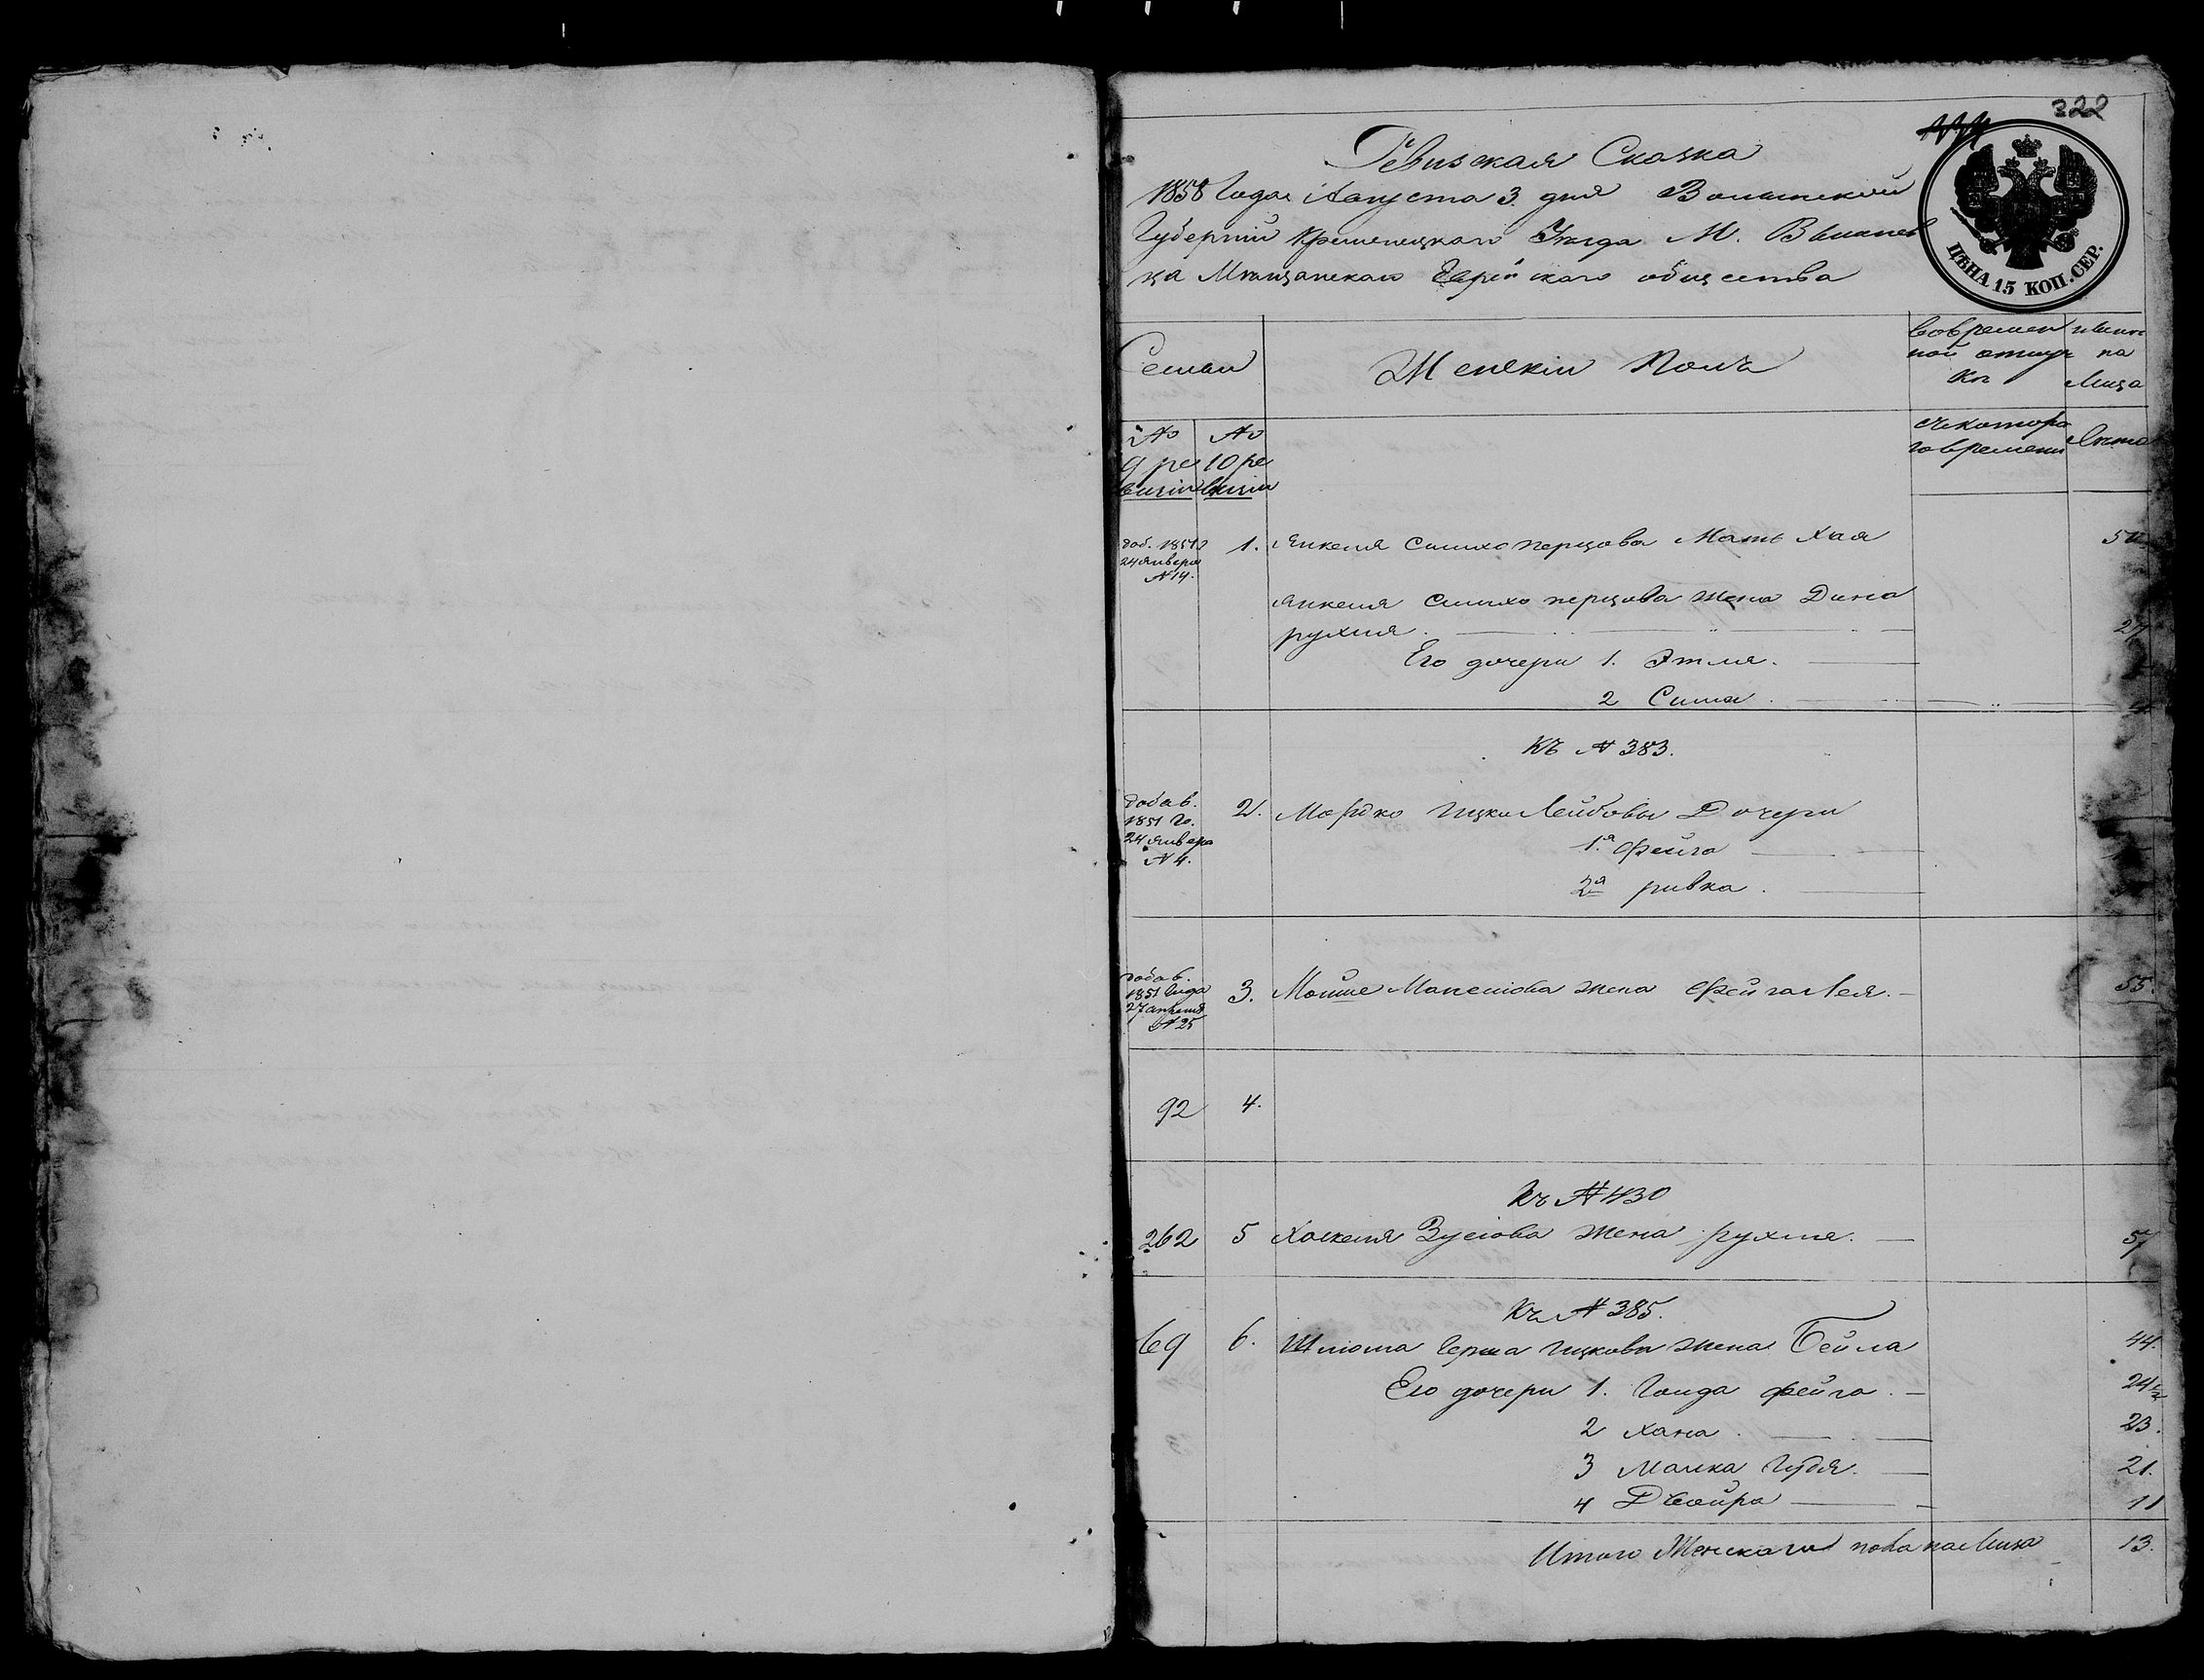 322
Ревизская Сказка
1858 года Августа 3. дня Волынской
Губерніи Кременецкаго Уезда М. Вышнев
ца Мѣщанскаго Еврейскаго общества
ЦѢНА 15 КОП. СЕР.
Семьи
Женскій Полъ
Во времен
ной отлуч
кѣ
на
Лица
№
9 ре
визіи
№
10 ре
визіи
съ котора
го времени
Лѣта
доб. 1851
24 января
№ 14.
1. Янкеля Симхо перцова Мать Хая
Янкеля Симхо перцова жена Дина
рухля. 27
Его дочери 1. Этля.
2 Сима.
Къ № 383.
добав.
1851 го.
24 января
№ 4.
2. Мордко Ицки Лейбовы Дочери
1.я Фейга
2я ривка.
добав.
1851 года
27 апреля
№ 25
3. Мойше жена Фейга Лея. 55.
92 4.
Къ № 430
262 5 Хаскеля Зусіова жена рухля. 57
Къ № 385.
69 6. Шліома Герша Ицкова жена Бейла 44.
Его дочери 1. Гольда фейга. 24
2 Хана. 23.
3 Малка 21.
4 Двойра 11
Итого Женскаго пола на Лицо 13.